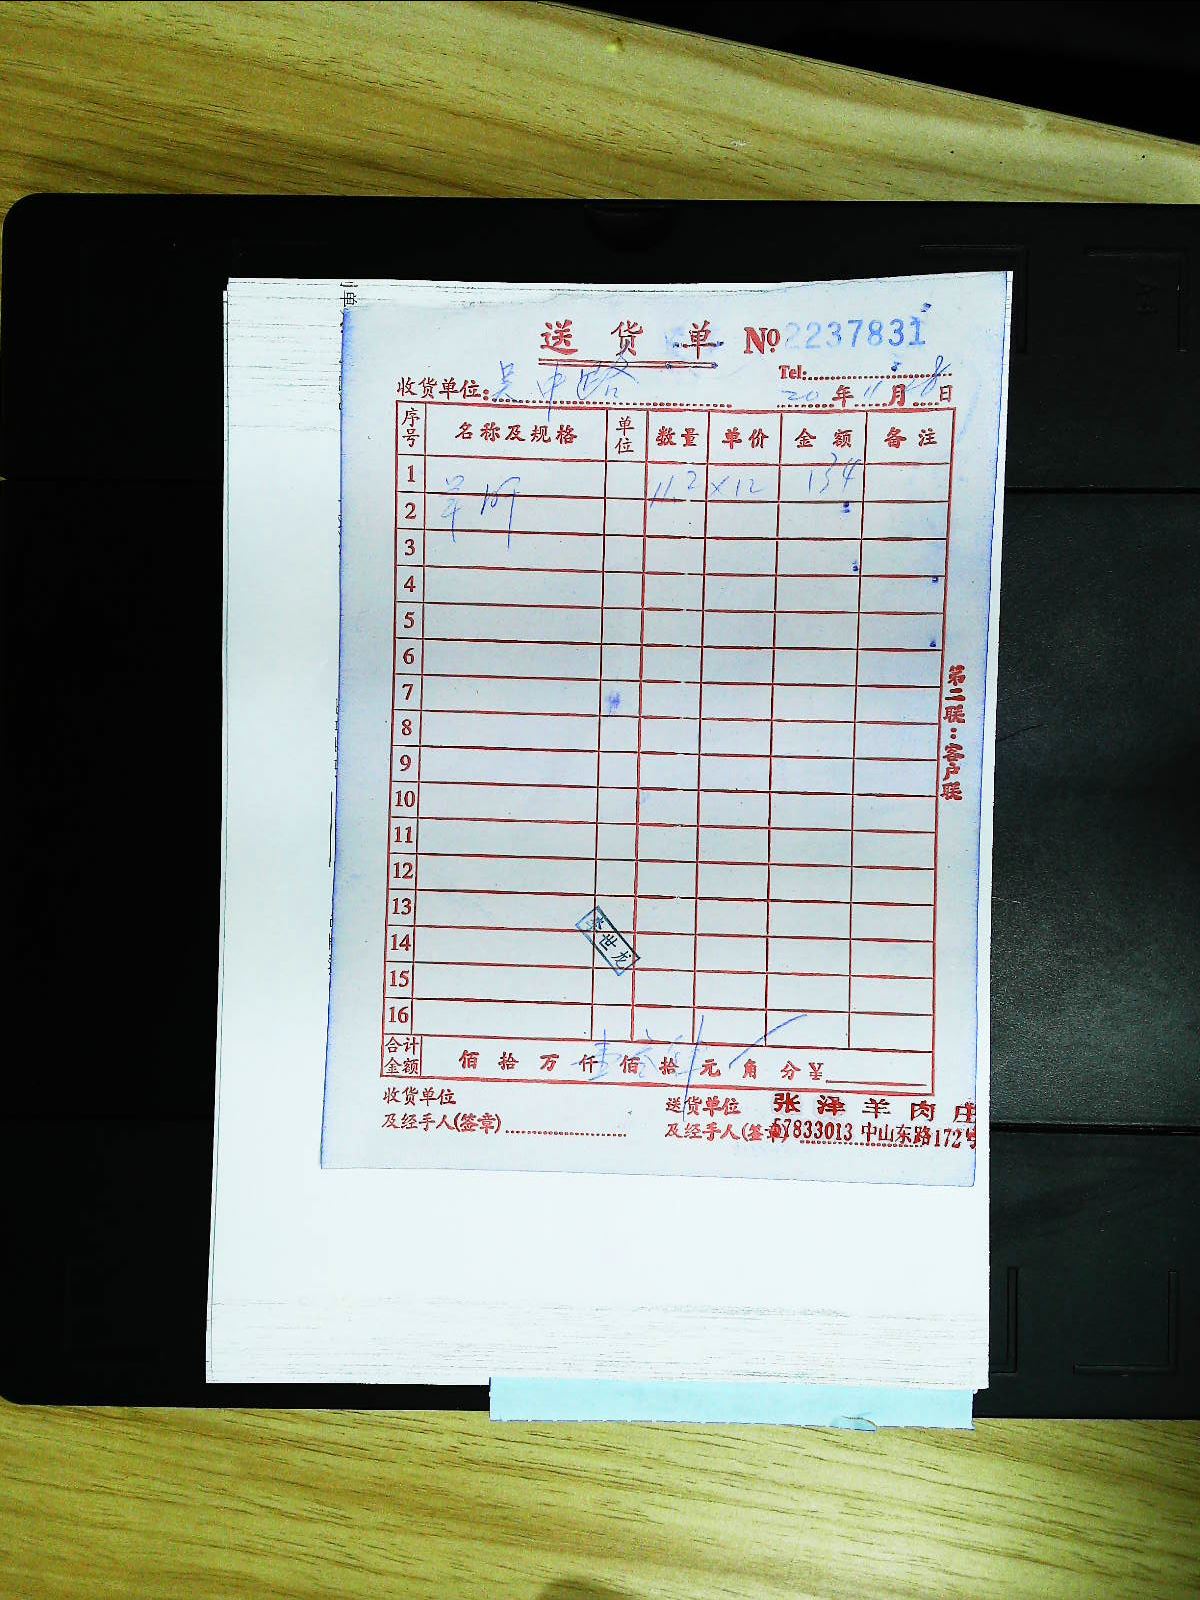 送货单 No 2237831
Tel:
收货单位: 吴中路 20年11月28日
序号 名称及规格 单位 数量 单价 金额 备注
1
羊肝 11.2 ×12 134
2
3
4
5
6
7
8
9
10
11
12
13
14
世龙
15
16
合计金额 佰拾万仟佰拾元角分¥
收货单位 送货单位 张泽羊肉庄
及经手人(签章) 及经手人(签章) 57833013 中山东路172号
第二联:客户联